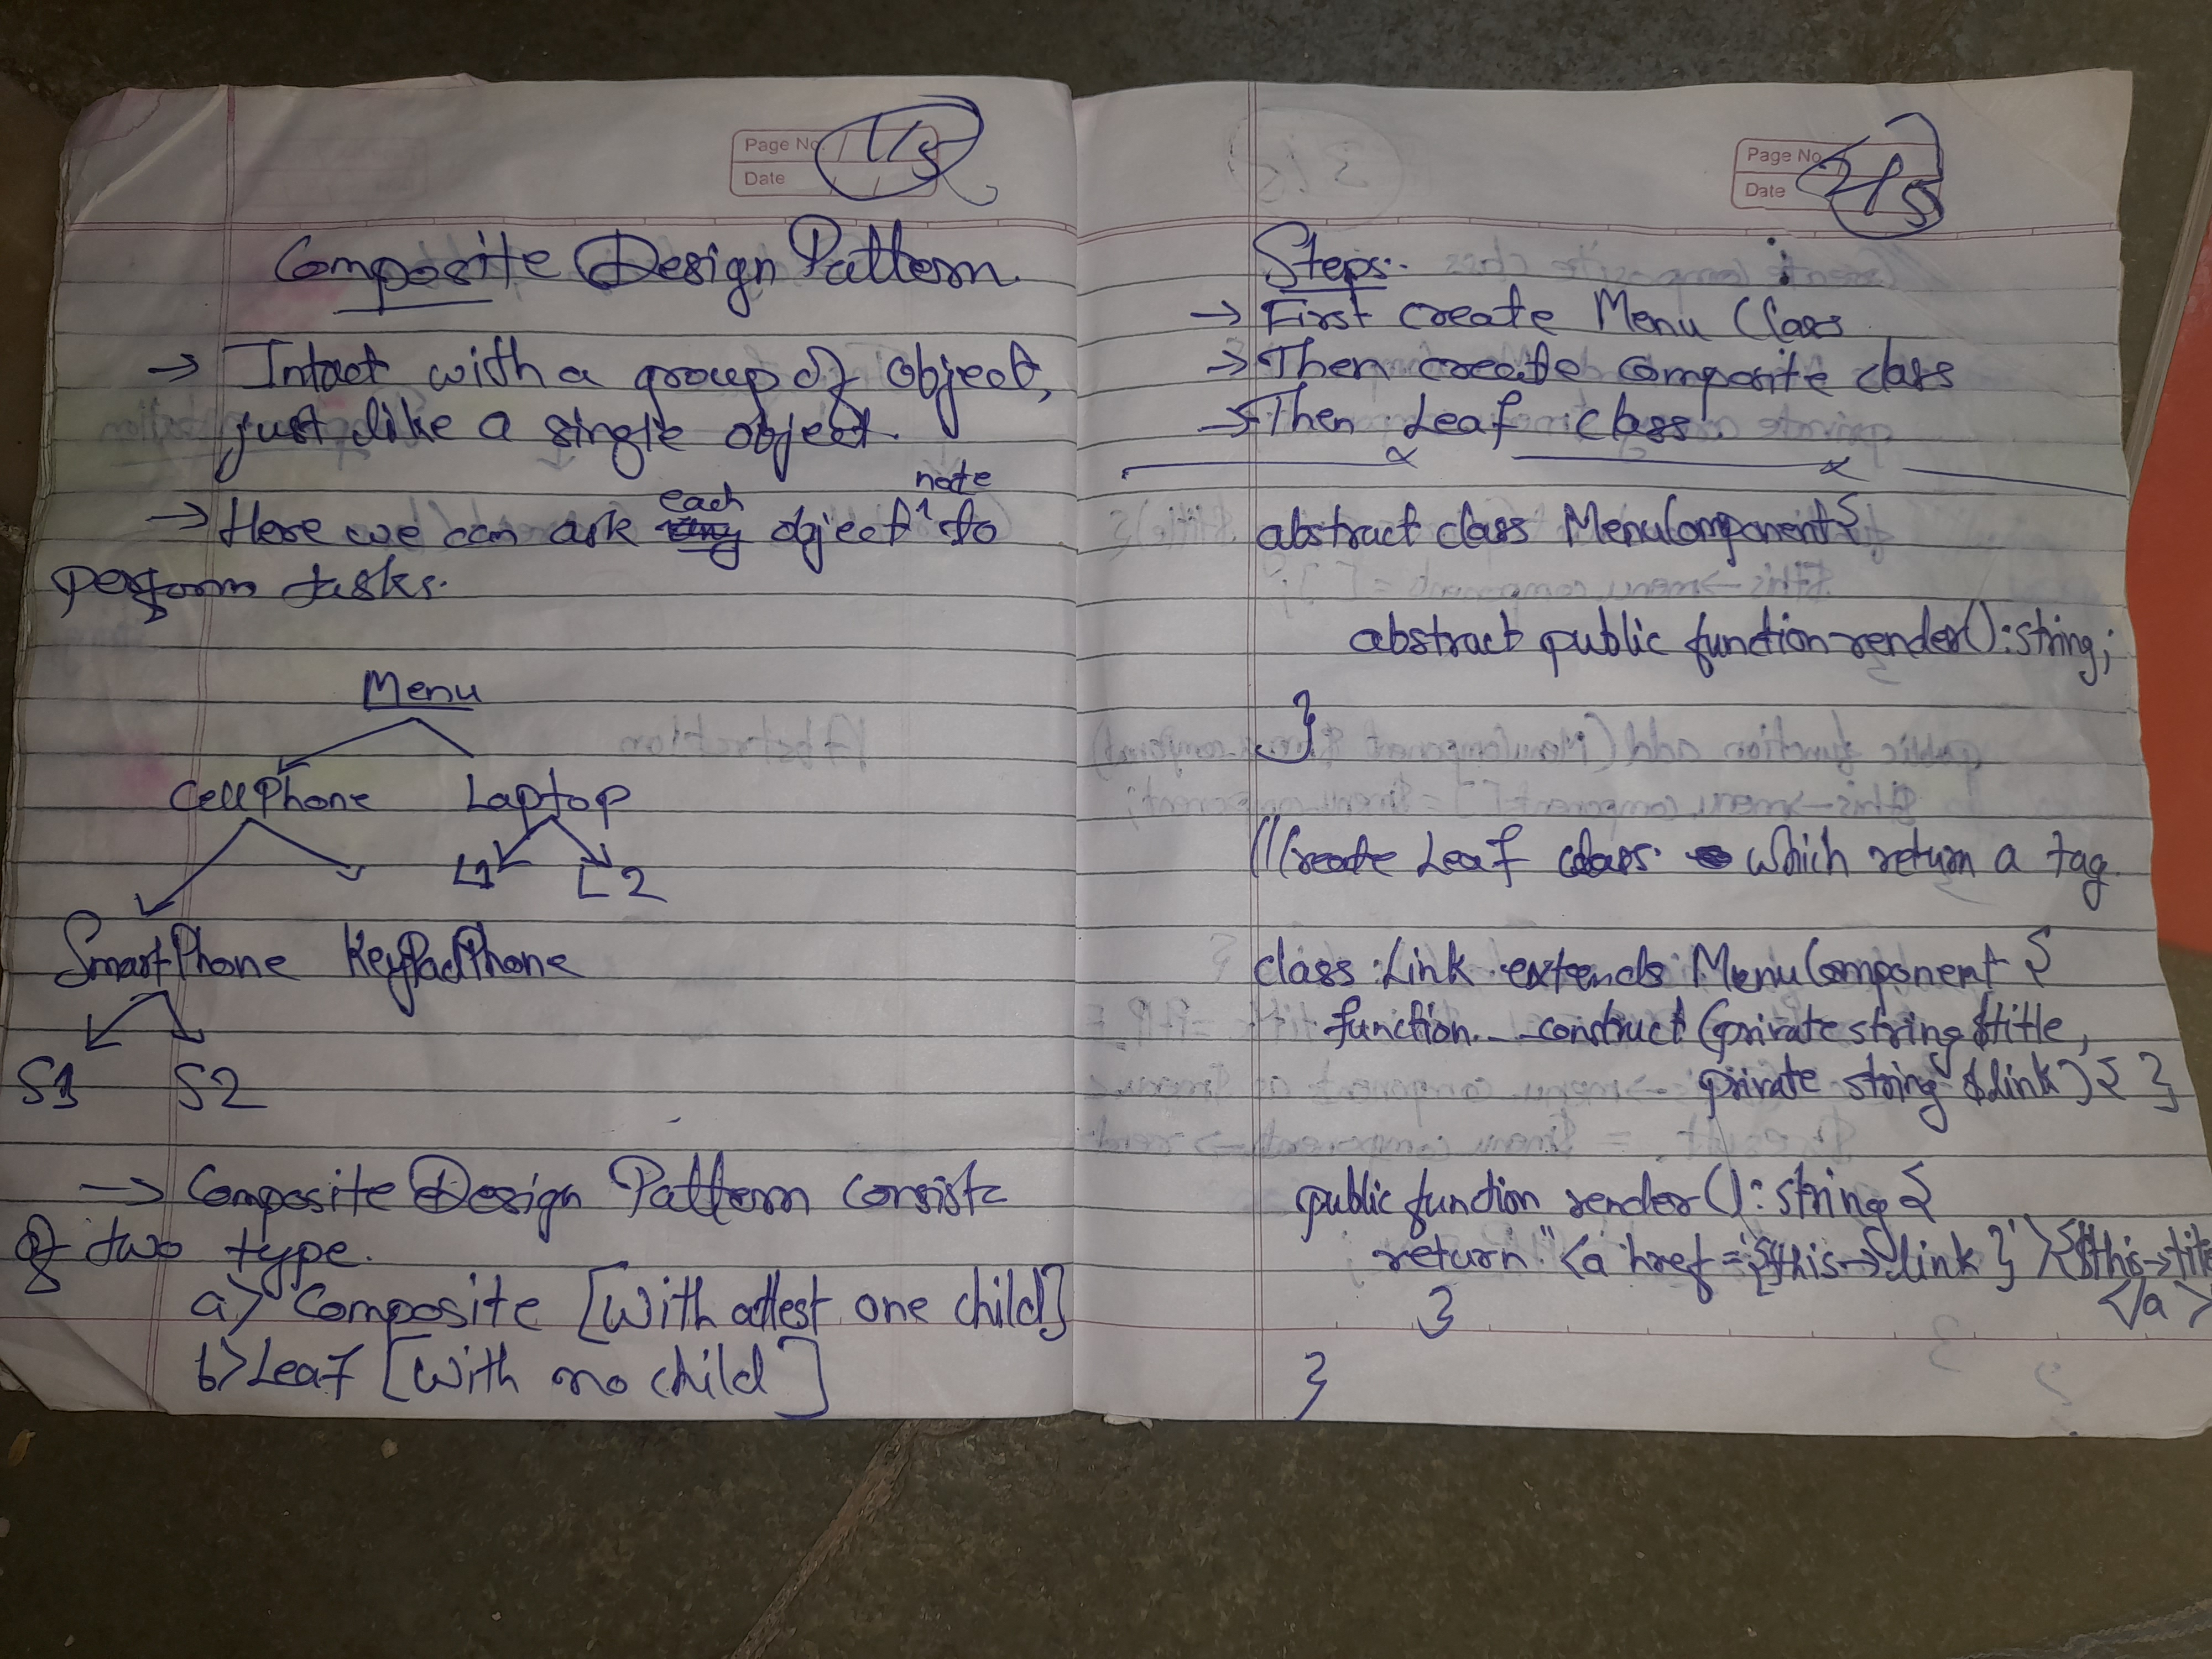 Page No.
Date
1/5
Composite Design Pattern.
→ Intact with a group of object,
just like a single object.
→ Here we can ask each object note to
perform tasks.
Menu
CellPhone Laptop
L1 L2
SmartPhone KeyPadPhone
S1 S2
→ Composite Design Pattern consist
of two type.
a) Composite [With atlest one child]
b) Leaf [With no child]
Page No.
Date
2/5
Steps:-
→ First create Menu Class
→ Then create composite class
→ Then Leaf class.
abstract class MenuComponent {
abstract public function render(): string;
}
// Create Leaf class which return a tag.
class Link extends MenuComponent {
function __construct (private string $title,
private string $link) { }
public function render(): string {
return "<a href='{$this->link}'>{$this->tit
</a>
}
}